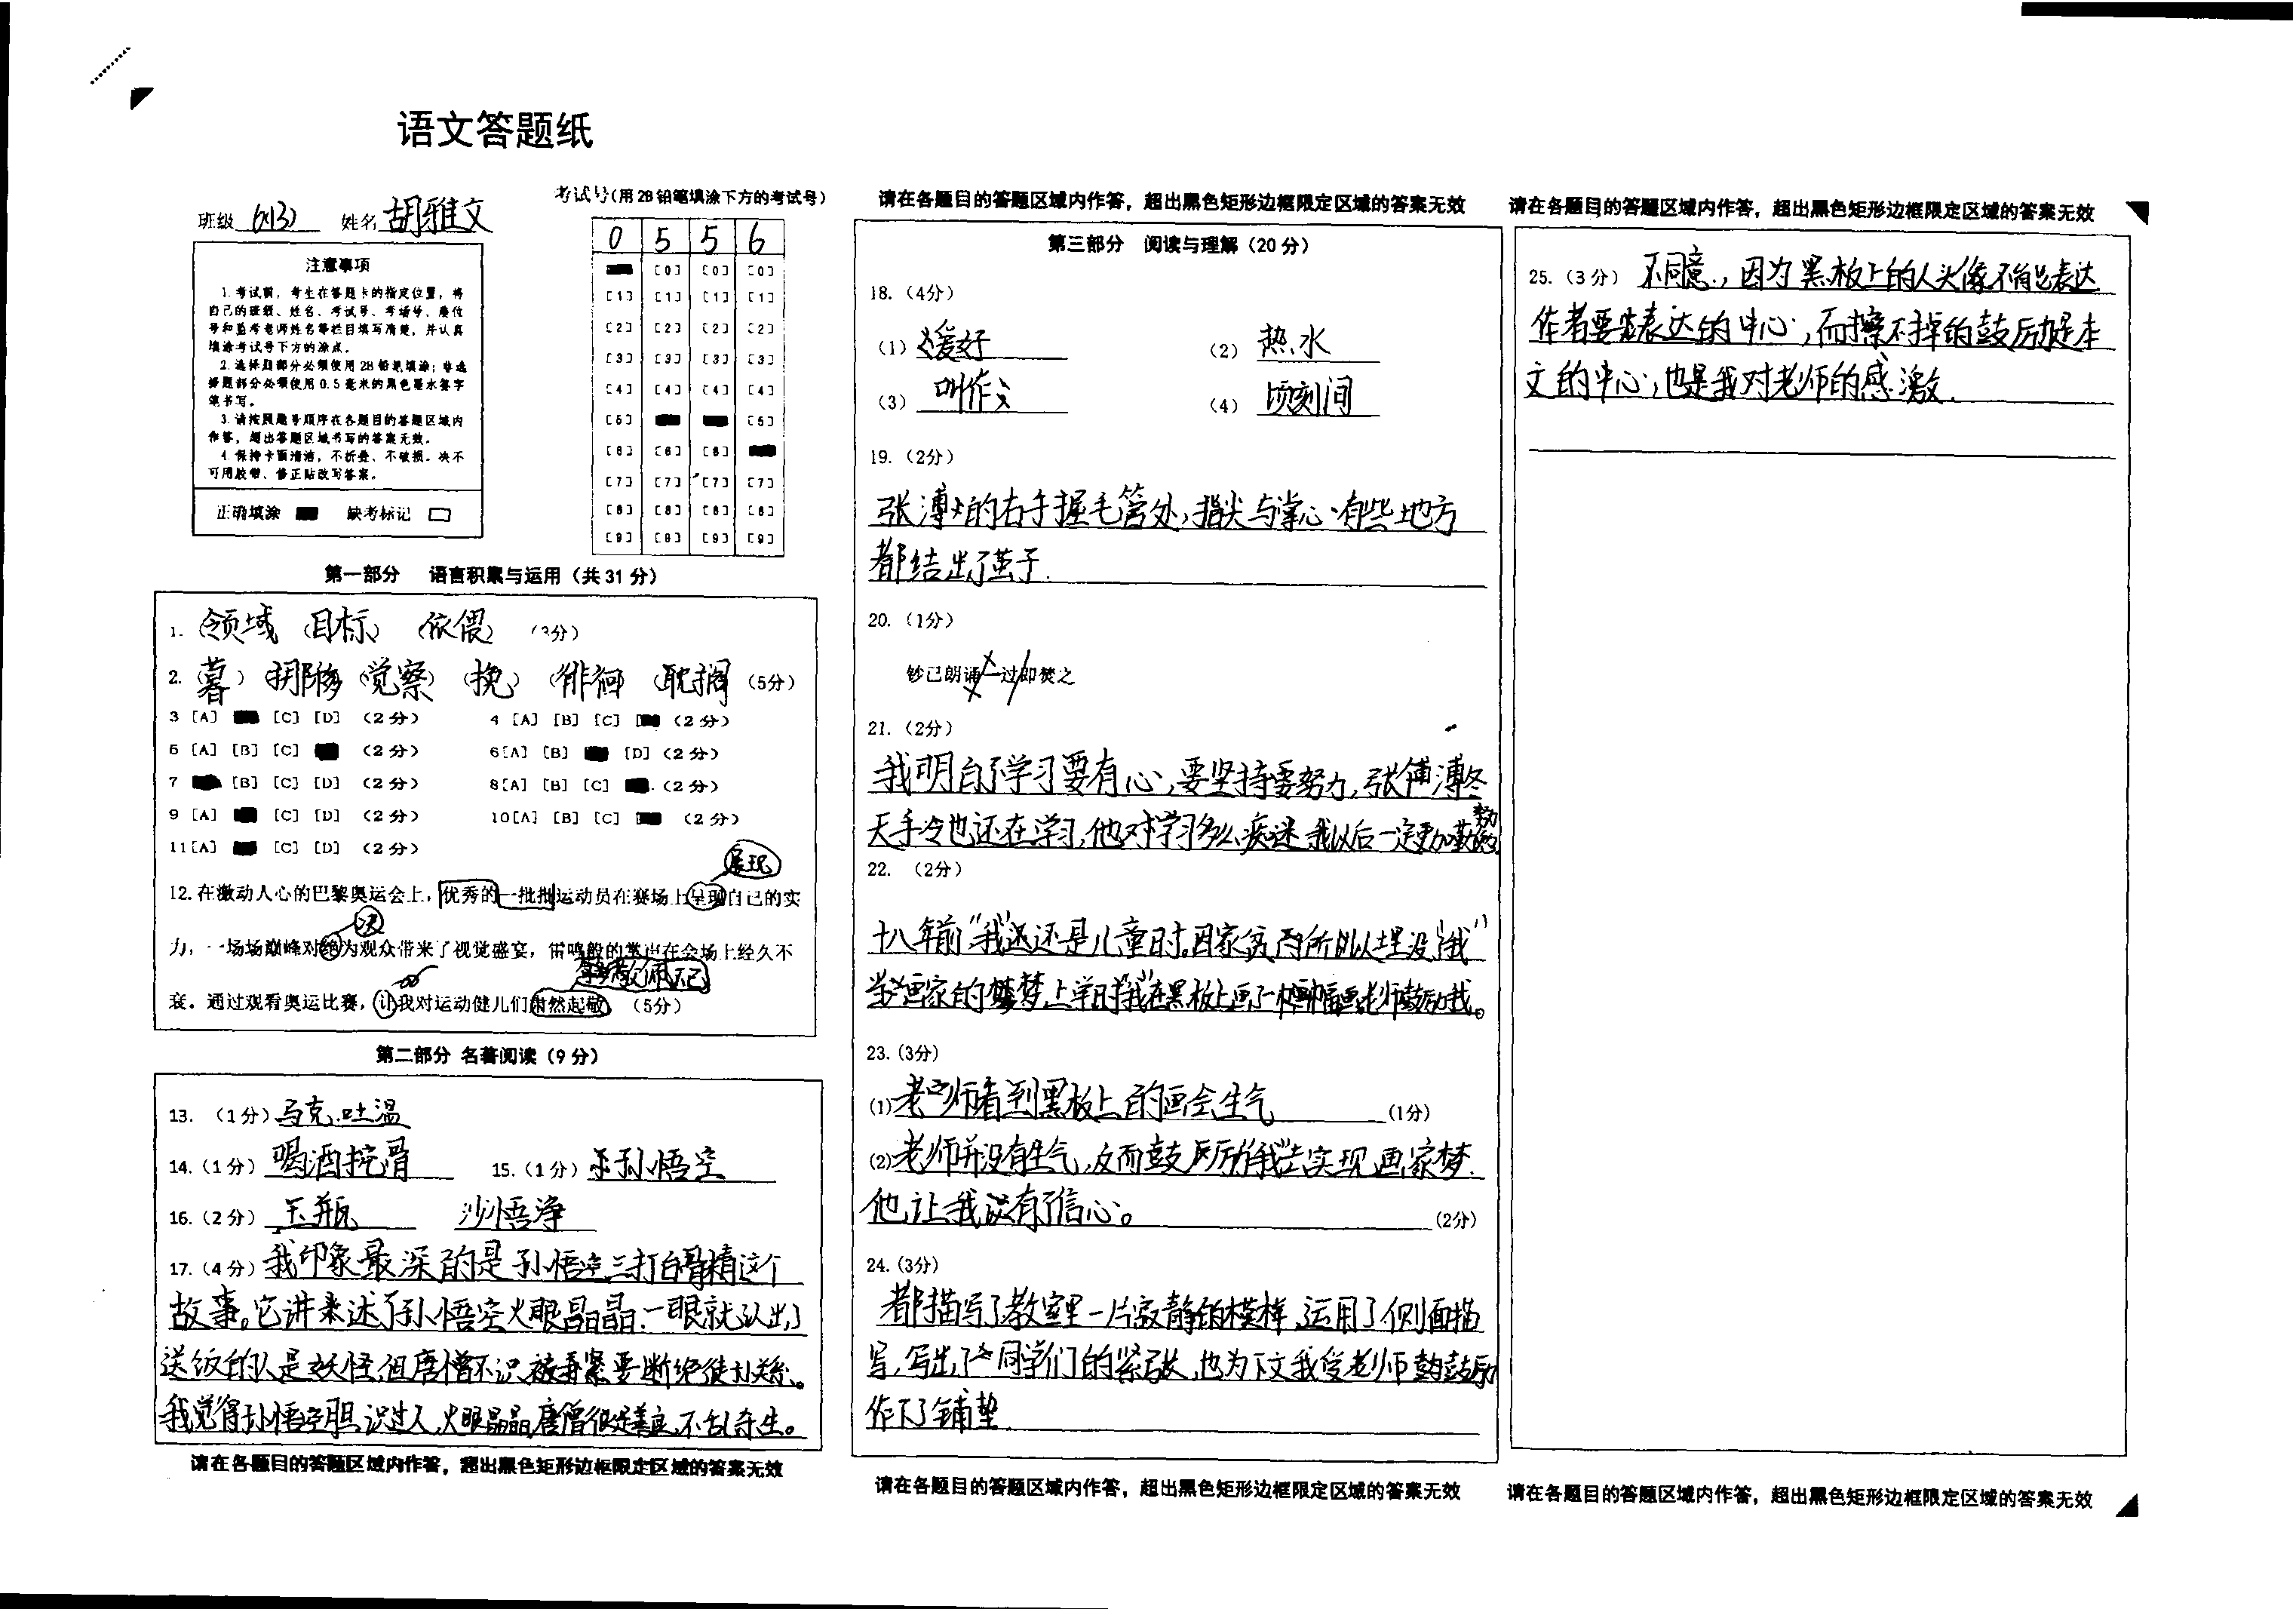 语文答题纸
班级 6(13) 姓名 胡雅文
考试号(用2B铅笔填涂下方的考试号)
0 5 5 6
注意事项
1.考试前，考生在答题卡的指定位置，将
自己的班级、姓名、考试号、考场号、座位
号和监考老师姓名等栏目填写清楚，并认真
填涂考试号下方的涂点。
2.选择题部分必须使用2B铅笔填涂；非选
择题部分必须使用0.5毫米的黑色墨水签字
笔书写。
3.请按照题号顺序在各题目的答题区域内
作答，超出答题区域书写的答案无效。
4.保持卡面清洁，不折叠、不破损。决不
可用胶带、修正贴改写答案。
正确填涂 缺考标记
[0] [0] [0]
[1] [1] [1] [1]
[2] [2] [2] [2]
[3] [3] [3] [3]
[4] [4] [4] [4]
[5] [5]
[6] [6] [6]
[7] [7] [7] [7]
[8] [8] [8] [8]
[9] [9] [9] [9]
第一部分 语言积累与运用（共31分）
1. 领域 (目标) (依偎) (3分)
2. (暮) 挪移 (觉察) (挽) (徘徊 (耽搁 (5分)
3 [A] [C] [D] (2分) 4 [A] [B] [C] (2分)
5 [A] [B] [C] (2分) 6[A] [B] [D] (2分)
7 [B] [C] [D] (2分) 8[A] [B] [C] (2分)
9 [A] [C] [D] (2分) 10[A] [B] [C] (2分)
11[A] [C] [D] (2分)
展现
12.在激动人心的巴黎奥运会上，优秀的一批批运动员在赛场上呈现自己的实
决
力，一场场巅峰对绝为观众带来了视觉盛宴，雷鸣般的掌声在会场上经久不
敬佩不已
衰。通过观看奥运比赛，让我对运动健儿们肃然起敬。（5分）
第二部分 名著阅读（9分）
13.（1分）马克.吐温
14.（1分）喝酒挖骨 15.（1分）孙悟空
16.（2分）玉瓶 沙悟净
17.（4分）我印象最深的是孙悟空三打白骨精这个
故事。它讲述了孙悟空火眼晶晶.一眼就认出了
送饭的人是妖怪,但唐僧不识,被要断绝徒扑关系。
我觉得孙悟空胆识过人,火眼晶晶,唐僧很是善良,不乱杀生。
请在各题目的答题区域内作答，超出黑色矩形边框限定区域的答案无效
请在各题目的答题区域内作答，超出黑色矩形边框限定区域的答案无效
第三部分 阅读与理解（20分）
18.（4分）
（1）爱好 （2）热水
（3）叫作 （4）顷刻间
19.（2分）
张溥的右手握毛管处,指尖与掌心有些地方
都结出了茧子.
20.（1分）
钞已朗诵一过即焚之
21.（2分）
我明白了学习要有心,要坚持要努力,张溥冬
天手冷也还在学习,他对学习多么痴迷.我以后一定更加勤
22.（2分）
十八年前"我"还是儿童时,因家贫所以埋没"我"
当画家的梦,上学时"我"在黑板上画了一幅画老师鼓励我。
23.(3分)
(1)老师看到黑板上的画会生气 (1分)
(2)老师并没有生气,反而鼓励"我"去实现画家梦.
他让我有了信心。 (2分)
24.(3分)
都描写了教室里一片寂静的模样,运用了侧面描
写,写出了同学们的紧张,也为下文我受老师鼓励
作下了铺垫.
请在各题目的答题区域内作答，超出黑色矩形边框限定区域的答案无效
请在各题目的答题区域内作答，超出黑色矩形边框限定区域的答案无效
25.（3分）不同意.,因为黑板上的人头像不能表达
作者要表达的中心,而擦不掉的鼓励是本
文的中心,也是我对老师的感激.
请在各题目的答题区域内作答，超出黑色矩形边框限定区域的答案无效